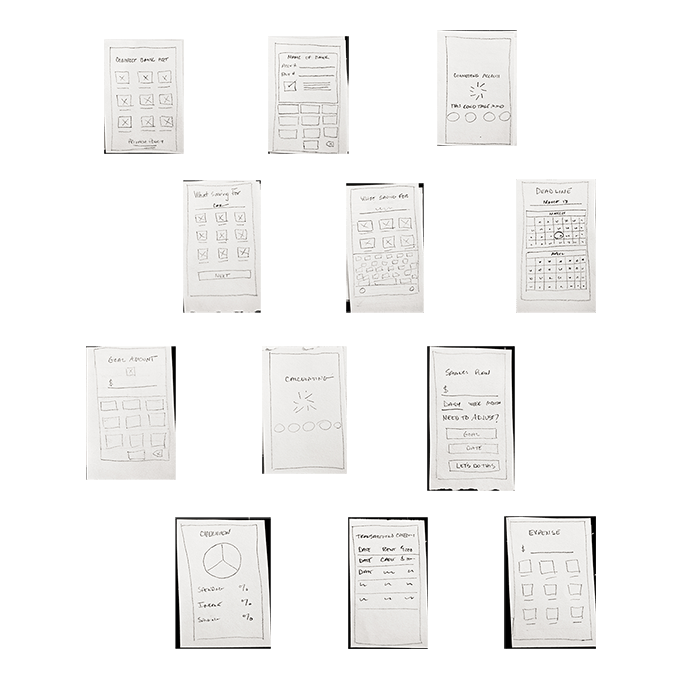 CONNECT BANK ACCT
NAME OF BANK
CONNECTING ACCOUNT
THIS COULD TAKE
What Saving For
CAR
NEXT
WHAT SAVING FOR
DEADLINE
MARCH 13
MARCH
APRIL
GOAL AMOUNT
$
CALCULATING
SAVINGS PLAN
$
DAILY WEEK MONTH
NEED TO ADJUST?
GOAL
DATE
LET'S DO THIS
OVERVIEW
SPENDING %
INCOME %
SAVINGS %
TRANSACTION
DATE RENT
DATE
DATE
EXPENSE
$